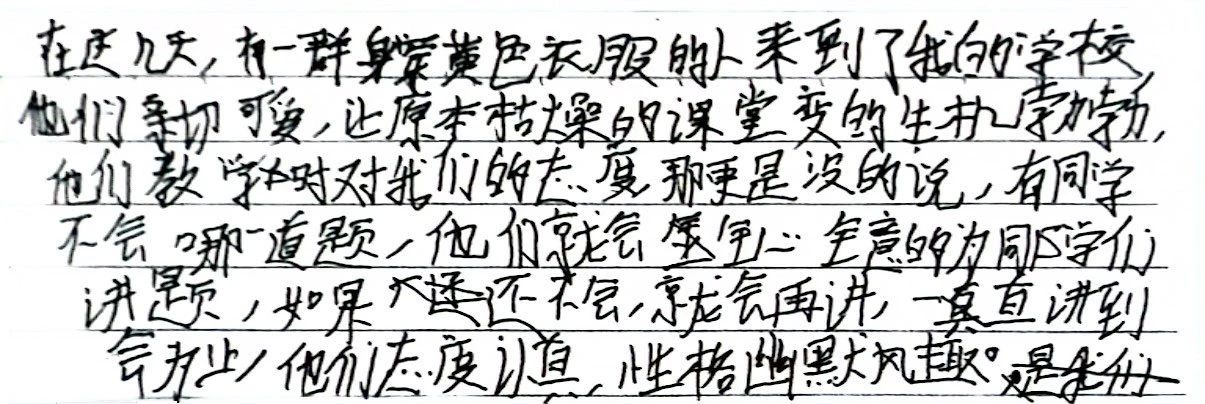 在这几天，有一群身穿黄色衣服的人来到了我的学校，
他们亲切可爱，让原本枯燥的课堂变的生机勃勃，
他们教学时对我们的态度那更是没的说，有同学
不会哪一道题，他们就会全心全意的为同学们
讲题，如果还不会，就会再讲，一直讲到
会为止，他们态度认真，性格幽默风趣。是我们